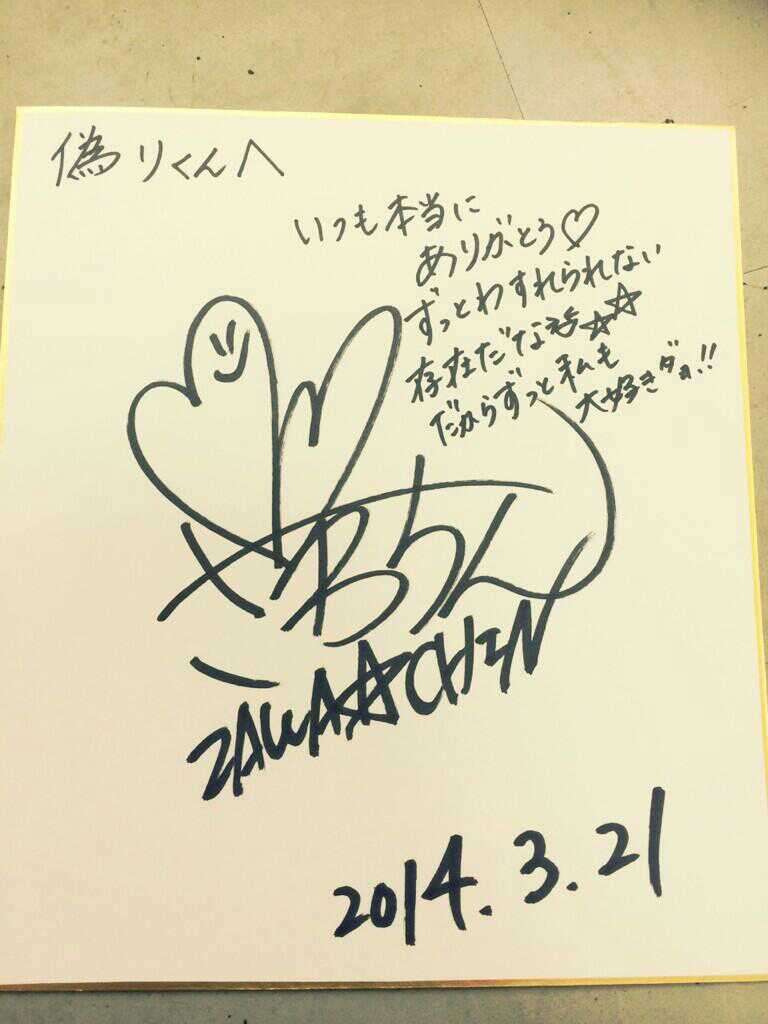 偽りくんへ
いつも本当に
ありがとう♡
ずっとわすれられない
存在だなぁ☆☆
だからずっと私も
大好きダョ!!
ざわちん
ZAWA☆CHIN
2014.3.21